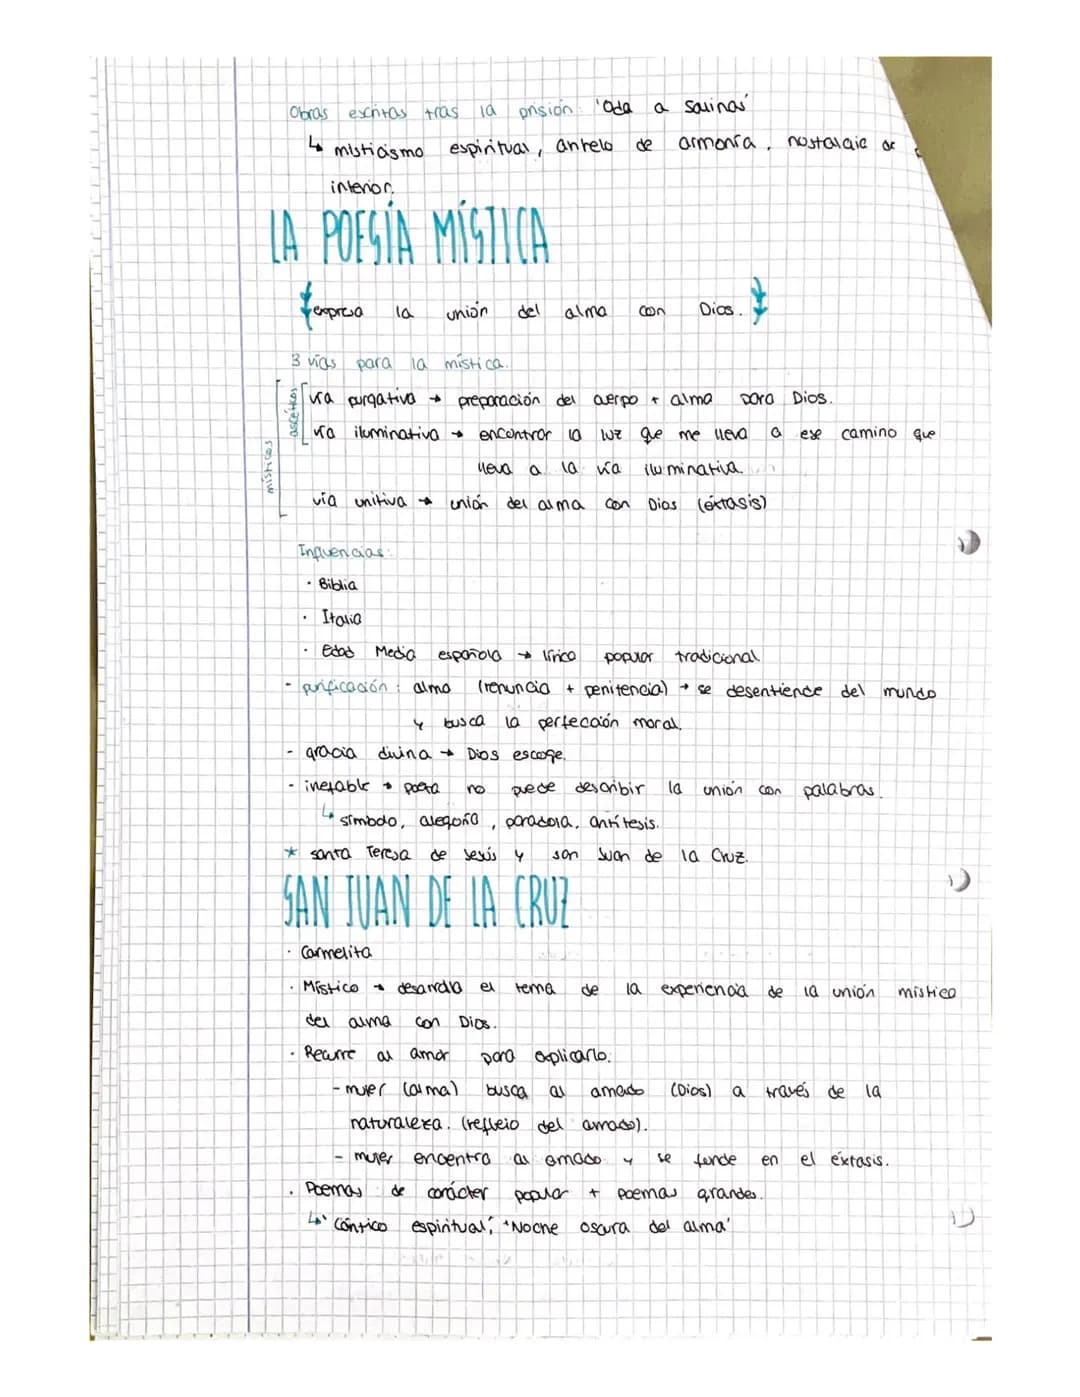 Obras escritas tras la prisión: 'Oda a Salinas'
↳ misticismo espiritual, anhelo de armonía, nostalgia de
interior.
LA POESÍA MÍSTICA
expresa la unión del alma con Dios.
3 vías para la mística.
vía purgativa → preparación del cuerpo + alma para Dios.
ascéticos
vía iluminativa → encontrar la luz que me lleva a ese camino que
místicos
lleva a la vía iluminativa.
vía unitiva → unión del alma con Dios (éxtasis)
Influencias:
· Biblia
· Italia
· Edad Media española → lírica popular tradicional.
- purificación: alma (renuncia + penitencia) → se desentiende del mundo
y busca la perfección moral.
- gracia divina → Dios escoge.
- inefable → poeta no puede describir la unión con palabras.
↳ símbolo, alegoría, paradoja, antítesis.
* Santa Teresa de Jesús y San Juan de la Cruz.
SAN JUAN DE LA CRUZ
· Carmelita
· Místico → desarrolla el tema de la experiencia de la unión mística
del alma con Dios.
· Recurre al amor para explicarlo.
- mujer (alma) busca al amado (Dios) a través de la
naturaleza. (reflejo del amado).
- mujer encentra al amado y se funde en el éxtasis.
· Poemas de carácter popular + poemas grandes.
↳ 'Cántico espiritual', 'Noche oscura del alma'